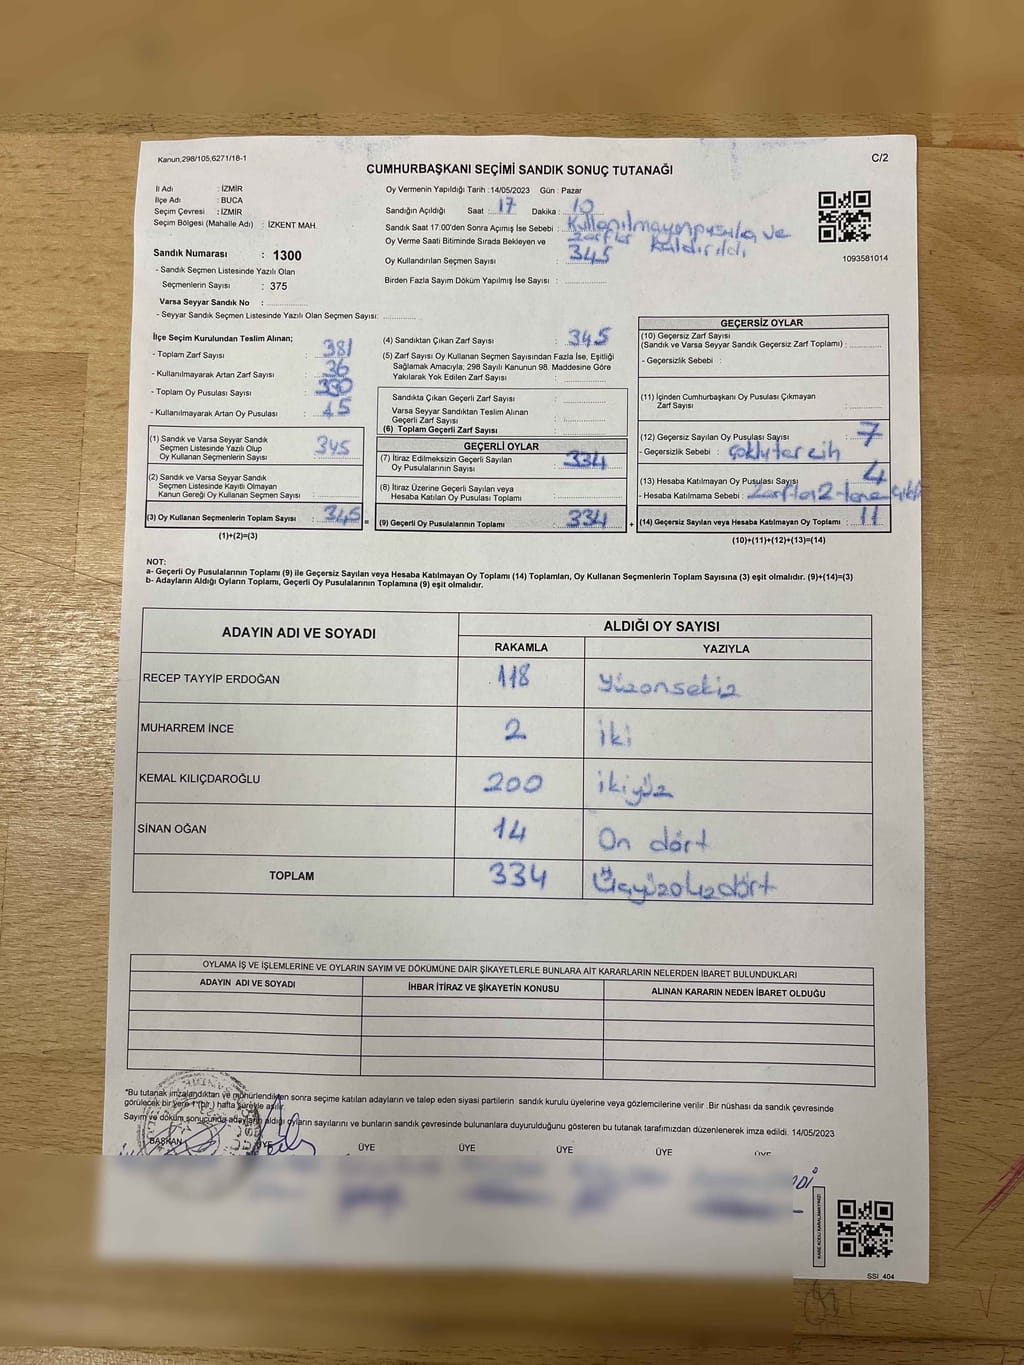 Kanun,298/105,6271/18-1
C/2
CUMHURBAŞKANI SEÇİMİ SANDIK SONUÇ TUTANAĞI
İl Adı : İZMİR
İlçe Adı : BUCA
Seçim Çevresi : İZMİR
Seçim Bölgesi (Mahalle Adı) : İZKENT MAH.
Sandık Numarası : 1300
- Sandık Seçmen Listesinde Yazılı Olan
Seçmenlerin Sayısı : 375
Varsa Seyyar Sandık No :
- Seyyar Sandık Seçmen Listesinde Yazılı Olan Seçmen Sayısı:
Oy Vermenin Yapıldığı Tarih : 14/05/2023 Gün : Pazar
Sandığın Açıldığı Saat : 17 Dakika : 10
Sandık Saat 17.00'den Sonra Açımış İse Sebebi : Kullanılmayan pusula ve
zarflar kaldırıldı
Oy Verme Saati Bitiminde Sırada Bekleyen ve
Oy Kullandırılan Seçmen Sayısı : 345
Birden Fazla Sayım Döküm Yapılmış İse Sayısı :
1093581014
İlçe Seçim Kurulundan Teslim Alınan;
- Toplam Zarf Sayısı : 381
- Kullanılmayarak Artan Zarf Sayısı : 36
- Toplam Oy Pusulası Sayısı :
- Kullanılmayarak Artan Oy Pusulası :
(1) Sandık ve Varsa Seyyar Sandık
Seçmen Listesinde Yazılı Olup
Oy Kullanan Seçmenlerin Sayısı : 345
(2) Sandık ve Varsa Seyyar Sandık
Seçmen Listesinde Kayıtlı Olmayan
Kanun Gereği Oy Kullanan Seçmen Sayısı :
(3) Oy Kullanan Seçmenlerin Toplam Sayısı : 345 =
(1)+(2)=(3)
(4) Sandıktan Çıkan Zarf Sayısı : 345
(5) Zarf Sayısı Oy Kullanan Seçmen Sayısından Fazla İse, Eşitliği
Sağlamak Amacıyla; 298 Sayılı Kanunun 98. Maddesine Göre
Yakılarak Yok Edilen Zarf Sayısı :
Sandıkta Çıkan Geçerli Zarf Sayısı :
Varsa Seyyar Sandıktan Teslim Alınan
Geçerli Zarf Sayısı :
(6) Toplam Geçerli Zarf Sayısı :
GEÇERLİ OYLAR
(7) İtiraz Edilmeksizin Geçerli Sayılan
Oy Pusulalarının Sayısı : 334
(8) İtiraz Üzerine Geçerli Sayılan veya
Hesaba Katılan Oy Pusulası Toplamı :
(9) Geçerli Oy Pusulalarının Toplamı : 334 +
GEÇERSİZ OYLAR
(10) Geçersiz Zarf Sayısı
(Sandık ve Varsa Seyyar Sandık Geçersiz Zarf Toplamı) :
- Geçersizlik Sebebi :
(11) İçinden Cumhurbaşkanı Oy Pusulası Çıkmayan
Zarf Sayısı :
(12) Geçersiz Sayılan Oy Pusulası Sayısı : 7
- Geçersizlik Sebebi : çoklu tercih
(13) Hesaba Katılmayan Oy Pusulası Sayısı : 4
- Hesaba Katılmama Sebebi : Zarfta 2 tane çıktı
(14) Geçersiz Sayılan veya Hesaba Katılmayan Oy Toplamı : 11
(10)+(11)+(12)+(13)=(14)
NOT:
a- Geçerli Oy Pusulalarının Toplamı (9) ile Geçersiz Sayılan veya Hesaba Katılmayan Oy Toplamı (14) Toplamları, Oy Kullanan Seçmenlerin Toplam Sayısına (3) eşit olmalıdır. (9)+(14)=(3)
b- Adayların Aldığı Oyların Toplamı, Geçerli Oy Pusulalarının Toplamına (9) eşit olmalıdır.
ADAYIN ADI VE SOYADI ALDIĞI OY SAYISI
RAKAMLA YAZIYLA
RECEP TAYYİP ERDOĞAN 118 Yüzonsekiz
MUHARREM İNCE 2 iki
KEMAL KILIÇDAROĞLU 200 ikiyüz
SİNAN OĞAN 14 On dört
TOPLAM 334 Üçyüzotuzdört
OYLAMA İŞ VE İŞLEMLERİNE VE OYLARIN SAYIM VE DÖKÜMÜNE DAİR ŞİKAYETLERLE BUNLARA AİT KARARLARIN NELERDEN İBARET BULUNDUKLARI
ADAYIN ADI VE SOYADI İHBAR İTİRAZ VE ŞİKAYETİN KONUSU ALINAN KARARIN NEDEN İBARET OLDUĞU
*Bu tutanak imzalandıktan ve mühürlendikten sonra seçime katılan adayların ve talep eden siyasi partilerin sandık kurulu üyelerine veya gözlemcilerine verilir .Bir nüshası da sandık çevresinde
görülecek bir yere 1 (bir) hafta süreyle asılır.
Sayım ve döküm sonucunda adayların aldığı oyların sayılarını ve bunların sandık çevresinde bulunanlara duyurulduğunu gösteren bu tutanak tarafımızdan düzenlenerek imza edildi. 14/05/2023
BAŞKAN ÜYE ÜYE ÜYE ÜYE ÜYE ÜYE
KARE KODU KARALAMAYINIZ!
SSI 404